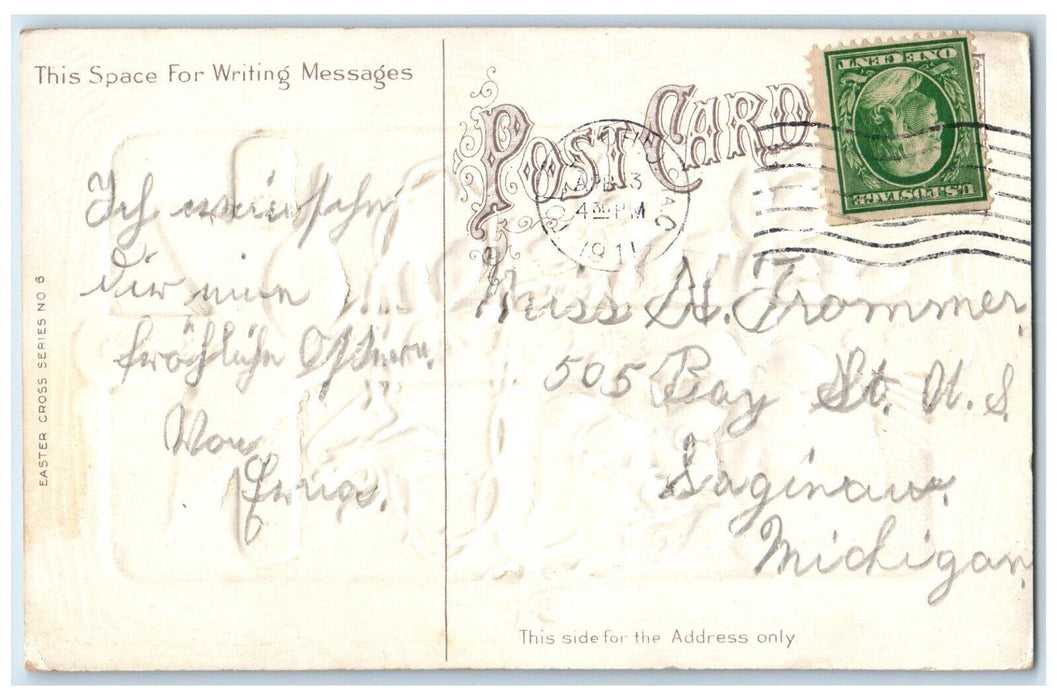 This Space For Writing Messages
POST CARD
APR 3
4 30 PM
1911
MICH
U.S. POSTAGE
ONE CENT
Ich wünsche
dir eine
fröhliche Ostern.
Von
Erna.
Miss A. Frommer,
505 Bay St. N. S.
Saginaw,
Michigan,
EASTER CROSS SERIES NO 6
This side for the Address only.